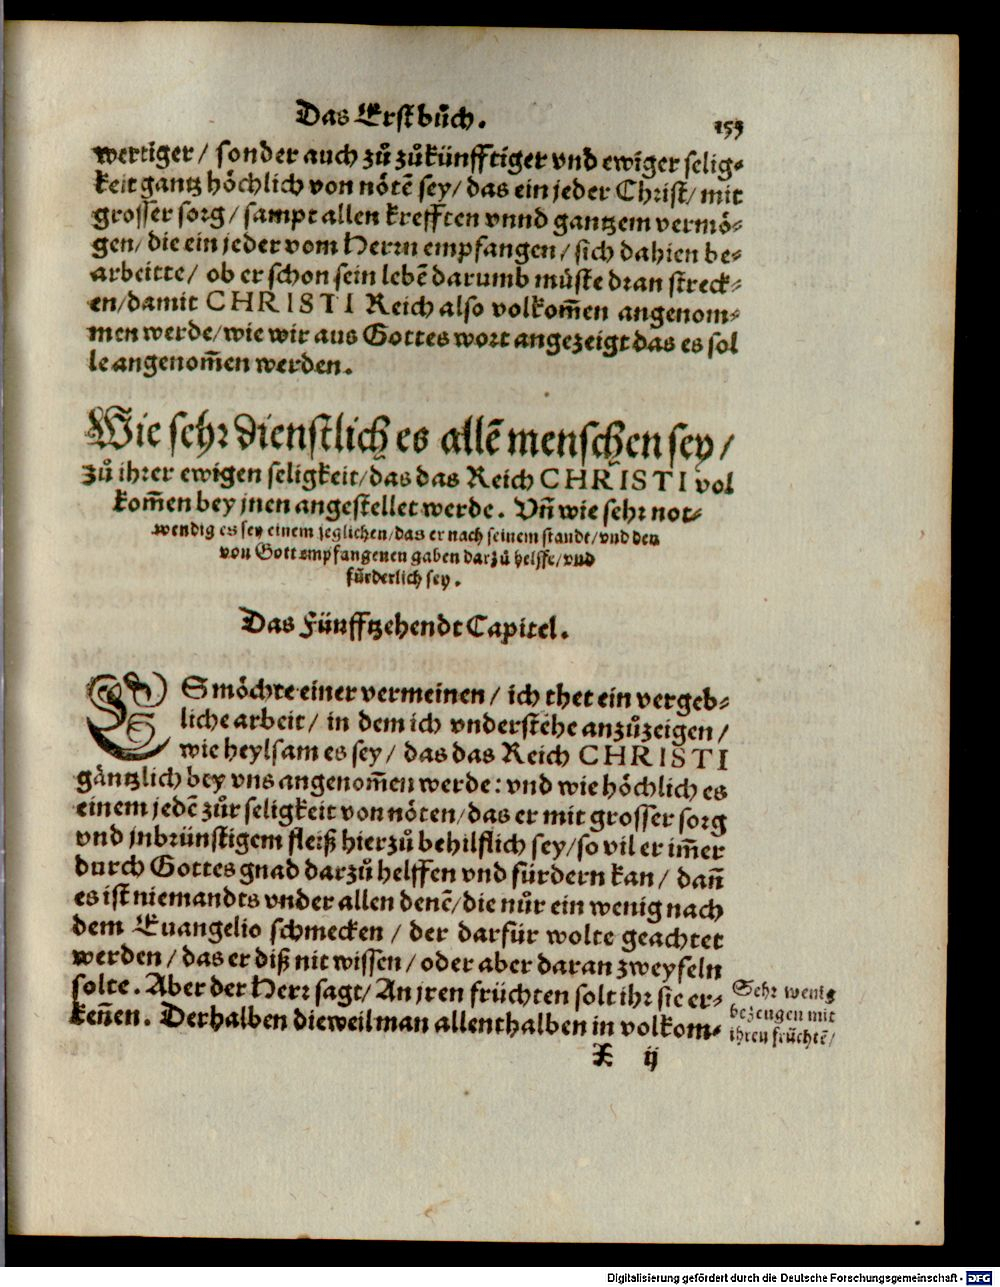 Das Erst bůch. 153
wertiger / sonder auch zů zůkünfftiger vnd ewiger selig⸗
keit gantz höchlich von nötē sey / das ein jeder Christ / mit
grosser sorg / sampt allen krefften vnnd gantzem vermö⸗
gen / die ein jeder vom Herrn empfangen / sich dahien be⸗
arbeitte / ob er schon sein lebē darumb müste dran streck⸗
en / damit CHRISTI Reich also volkom̄en angenom⸗
men werde / wie wir aus Gottes wort angezeigt das es sol
le angenom̄en werden.
Wie sehr dienstlich es allē menschen sey /
zů ihrer ewigen seligkeit / das das Reich CHRISTI vol
kom̄en bey jnen angestellet werde. Vn̄ wie sehr not⸗
wendig es sey einem jeglichen / das er nach seinem stande / vnd den
von Gott empfangenen gaben darzů helffe / vnd
fürderlich sey.
Das Fünfftzehendt Capitel.
ES möchte einer vermeinen / ich thet ein vergeb⸗
liche arbeit / in dem ich vnderstehe anzůzeigen /
wie heylsam es sey / das das Reich CHRISTI
gäntzlich bey vns angenom̄en werde : vnd wie höchlich es
einem jedē zůr seligkeit von nöten / das er mit grosser sorg
vnd jnbrünstigem fleiß hierzů behilflich sey / so vil er im̄er
durch Gottes gnad darzů helffen vnd fürdern kan / dan̄
es ist niemandts vnder allen denē / die nůr ein wenig nach
dem Euangelio schmecken / der darfür wolte geachtet
werden / das er diß nit wissen / oder aber daran zweyfeln
solte. Aber der Herr sagt / An jren früchten solt ihr sie er⸗
ken̄en. Derhalben dieweil man allenthalben in volkom⸗
Sehr wenig
bezeugen mit
ihren früchtē /
X ij
Digitalisierung gefördert durch die Deutsche Forschungsgemeinschaft - DFG